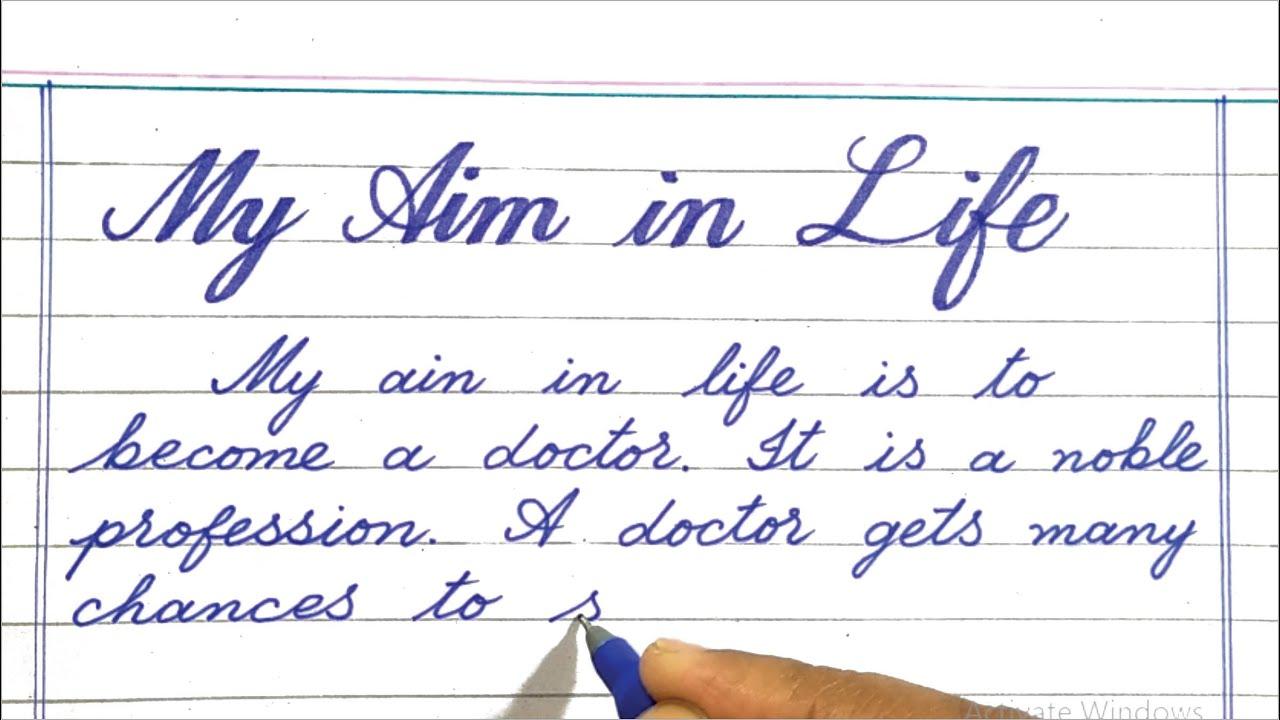 My Aim in Life
My ain in life is to
become a doctor. It is a noble
profession. A doctor gets many
chances to s
Activate Windows